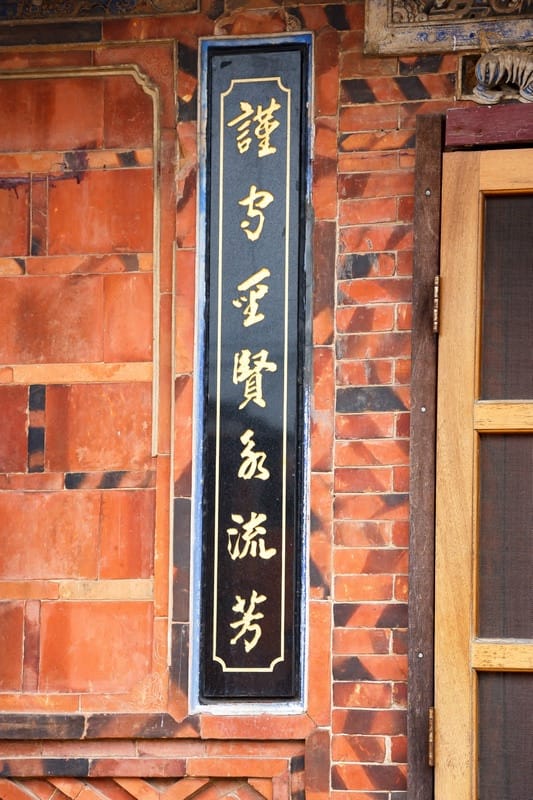 謹守聖賢永流芳